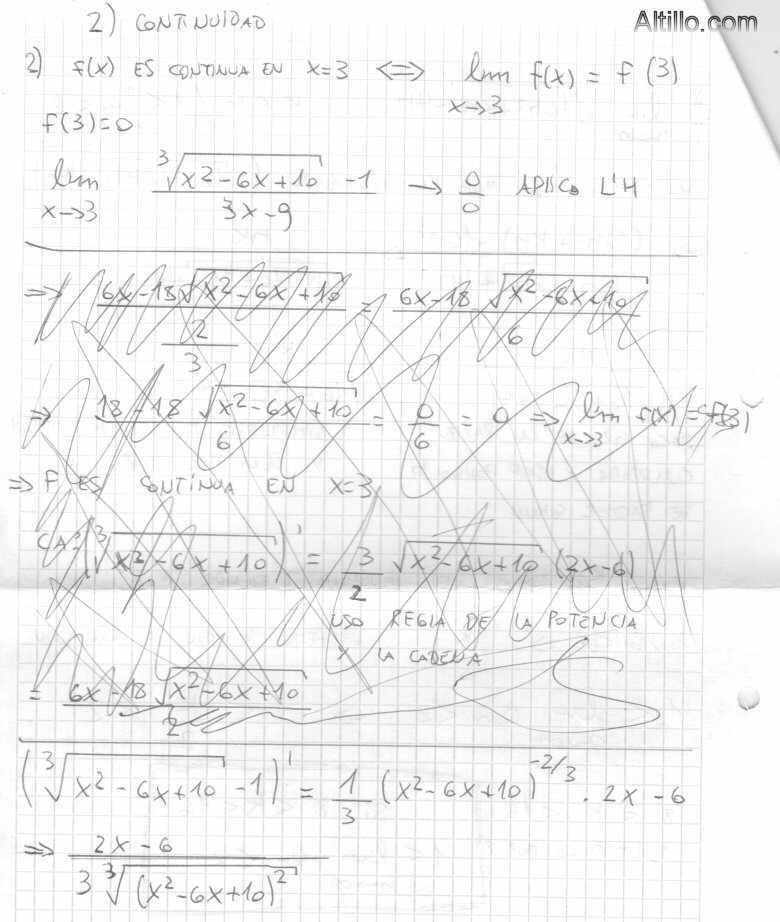 Altillo.com
2) CONTINUIDAD
2) f(x) ES CONTINUA EN x=3 <=> lim x→3 f(x) = f(3)
f(3)=0
lim x→3 (∛(x²-6x+10) -1)/(3x-9) → 0/0 APLICO L'H
=> (6x-18√(x²-6x+10))/(2/3) = (6x-18 √(x²-6x+10))/6
=> (18-18 √(x²-6x+10))/6 = 0/6 = 0 => lim x→3 f(x) = f(3)
=> f ES CONTINUA EN x=3
CA: (∛(x²-6x+10))' = 3/2 √(x²-6x+10) (2x-6)
USO REGLA DE LA POTENCIA
Y LA CADENA
= (6x-18√(x²-6x+10))/2
(∛(x²-6x+10) -1)' = 1/3 (x²-6x+10)^(-2/3) · 2x-6
=> (2x-6)/(3∛((x²-6x+10)²))